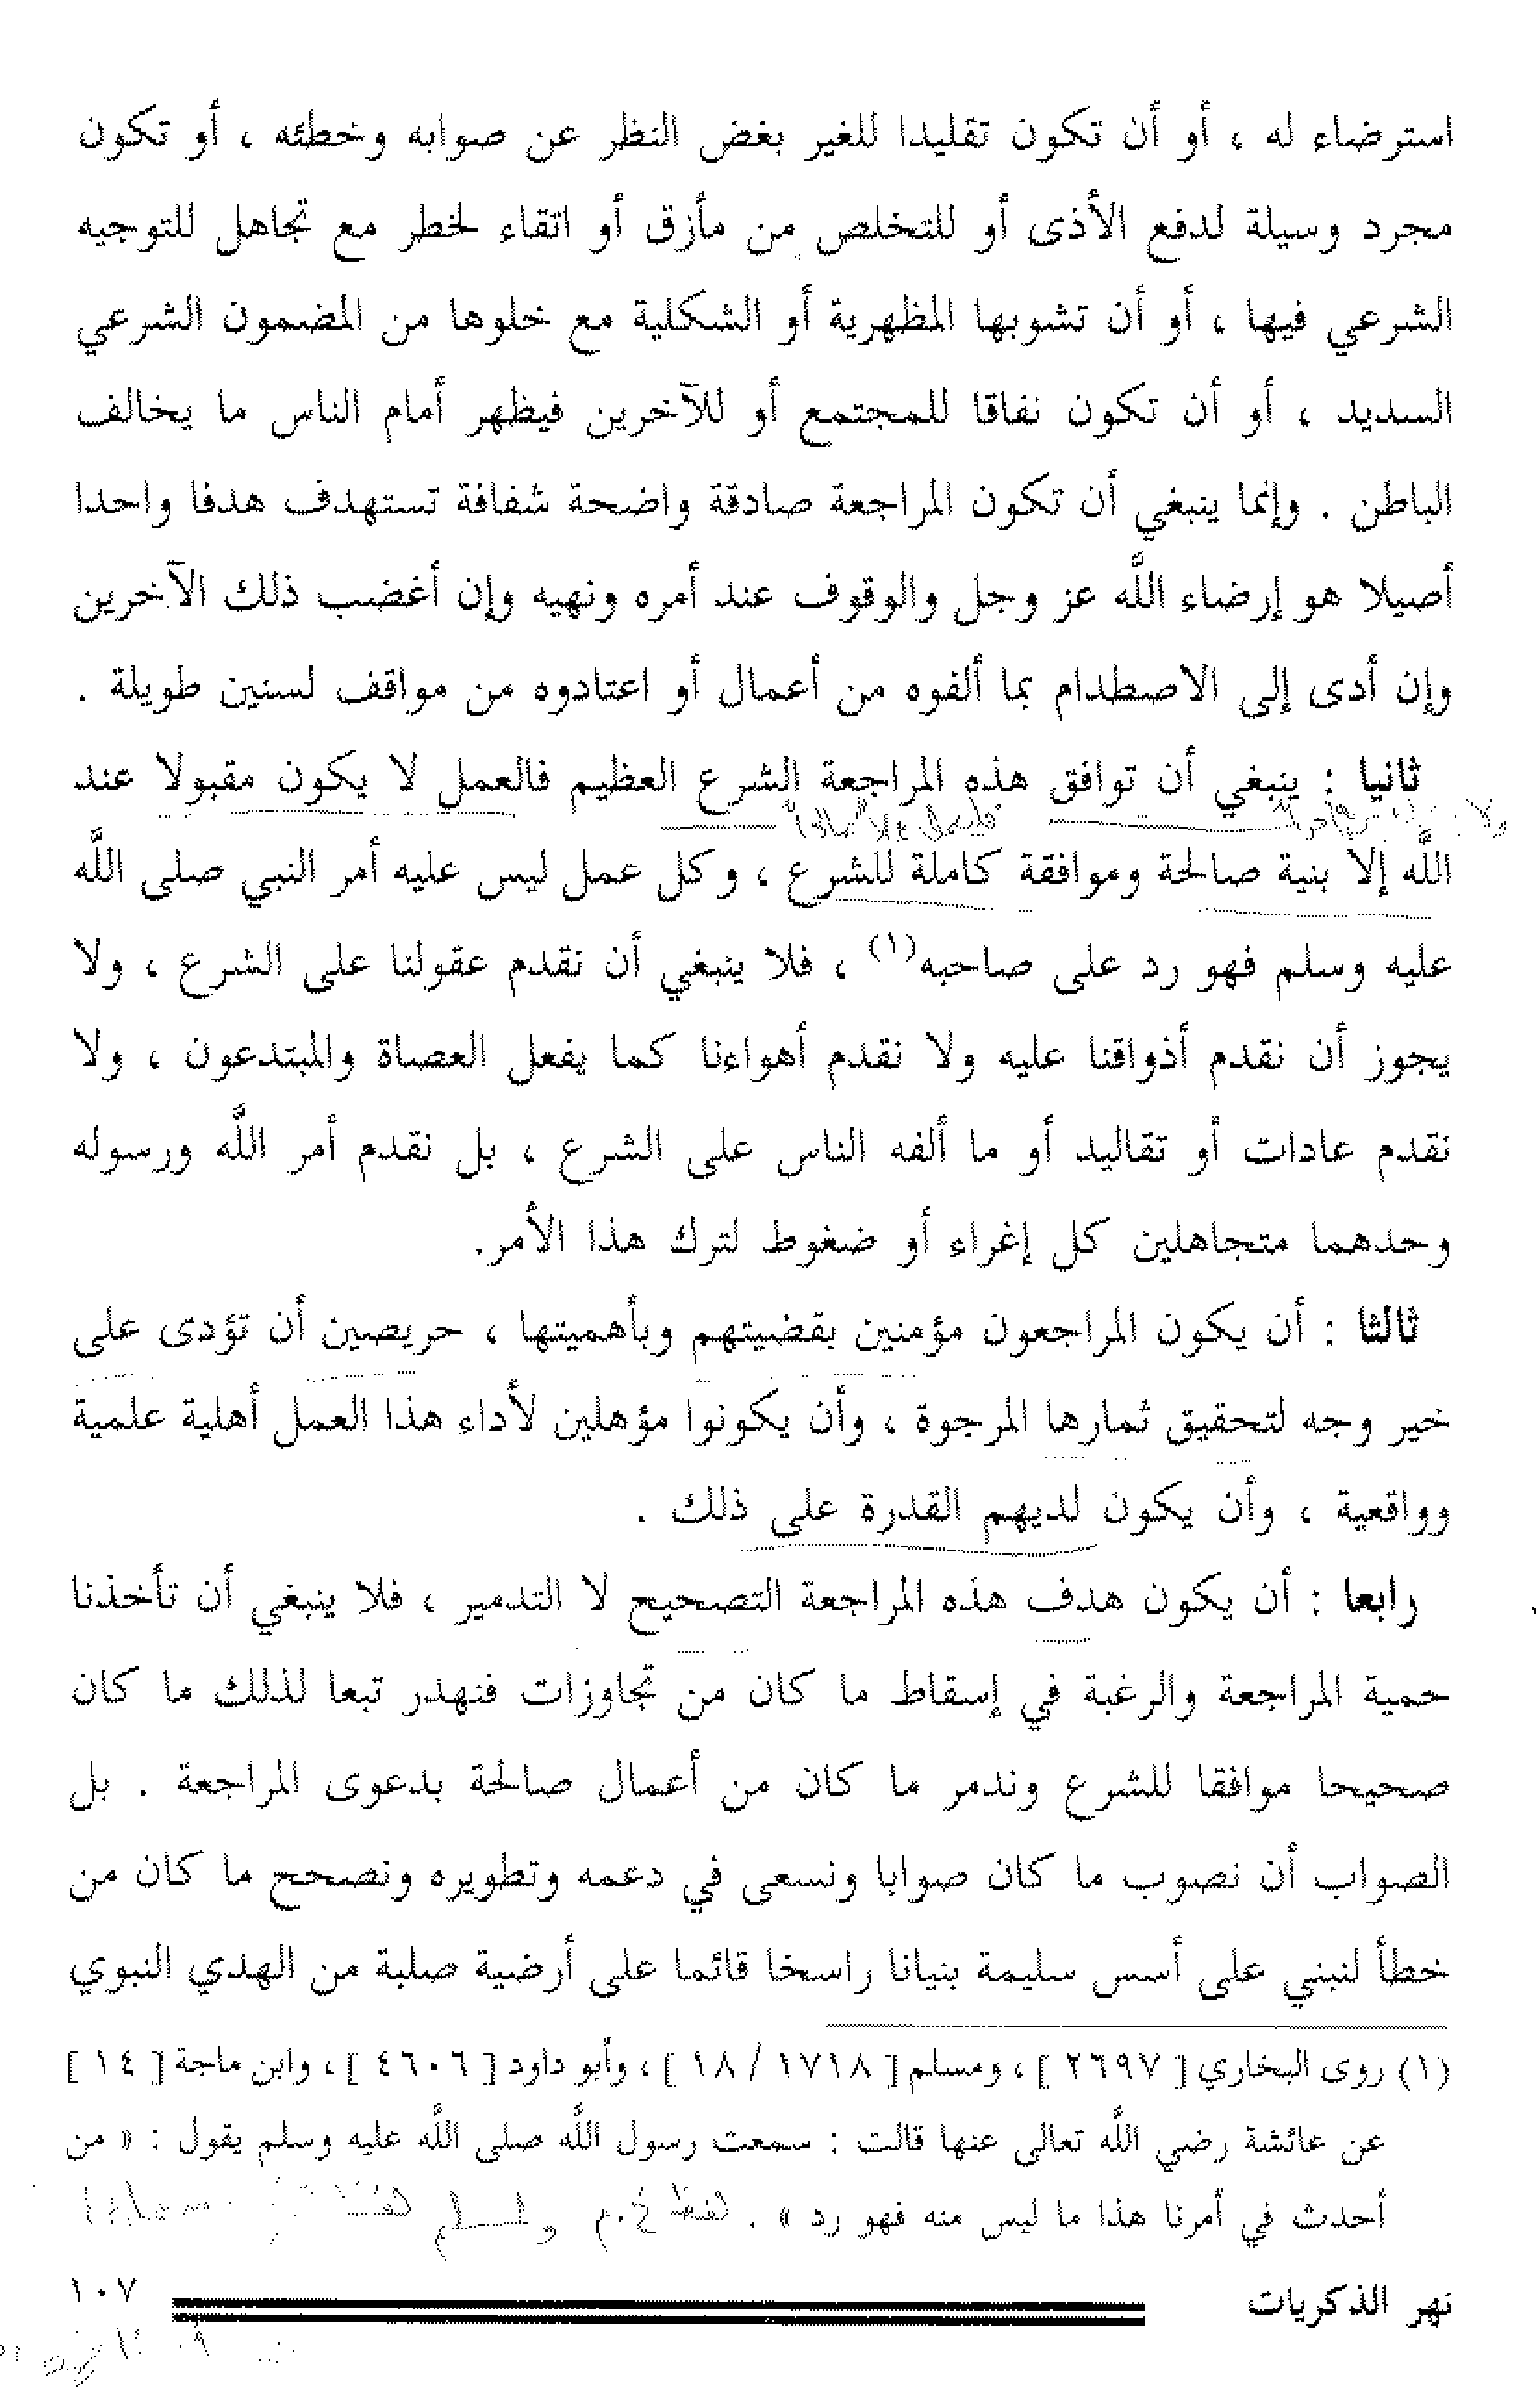 استرضاء له ، أو أن تكون تقليدا للغير بغض النظر عن صوابه وخطئه ، أو تكون
مجرد وسيلة لدفع الأذى أو للتخلص من مأزق أو اتقاء لخطر مع تجاهل للتوجيه
الشرعي فيها ، أو أن تشوبها المظهرية أو الشكلية مع خلوها من المضمون الشرعي
السديد ، أو أن تكون نفاقا للمجتمع أو للآخرين فيظهر أمام الناس ما يخالف
الباطن . وإنما ينبغي أن تكون المراجعة صادقة واضحة شفافة تستهدف هدفا واحدا
أصيلا هو إرضاء اللَّه عز وجل والوقوف عند أمره ونهيه وإن أغضب ذلك الآخرين
وإن أدى إلى الاصطدام بما ألفوه من أعمال أو اعتادوه من مواقف لسنين طويلة .
ثانيا : ينبغي أن توافق هذه المراجعة الشرع العظيم فالعمل لا يكون مقبولا عند
اللَّه إلا بنية صالحة وموافقة كاملة للشرع ، وكل عمل ليس عليه أمر النبي صلى اللَّه
عليه وسلم فهو رد على صاحبه(١) ، فلا ينبغي أن نقدم عقولنا على الشرع ، ولا
يجوز أن نقدم أذواقنا عليه ولا نقدم أهواءنا كما يفعل العصاة والمبتدعون ، ولا
نقدم عادات أو تقاليد أو ما ألفه الناس على الشرع ، بل نقدم أمر اللَّه ورسوله
وحدهما متجاهلين كل إغراء أو ضغوط لترك هذا الأمر.
ثالثا : أن يكون المراجعون مؤمنين بقضيتهم وبأهميتها ، حريصين أن تؤدى على
خير وجه لتحقيق ثمارها المرجوة ، وأن يكونوا مؤهلين لأداء هذا العمل أهلية علمية
وواقعية ، وأن يكون لديهم القدرة على ذلك .
رابعا : أن يكون هدف هذه المراجعة التصحيح لا التدمير ، فلا ينبغي أن تأخذنا
حمية المراجعة والرغبة في إسقاط ما كان من تجاوزات فنهدر تبعا لذلك ما كان
صحيحا موافقا للشرع وندمر ما كان من أعمال صالحة بدعوى المراجعة . بل
الصواب أن نصوب ما كان صوابا ونسعى في دعمه وتطويره ونصحح ما كان من
خطأ لنبني على أسس سليمة بنيانا راسخا قائما على أرضية صلبة من الهدي النبوي
(١) روى البخاري [ ٢٦٩٧ ] ، ومسلم [ ١٧١٨ / ١٨ ] ، وأبو داود [ ٤٦٠٦ ] ، وابن ماجة [ ١٤ ]
عن عائشة رضي اللَّه تعالى عنها قالت : سمعت رسول اللَّه صلى اللَّه عليه وسلم يقول : « من
أحدث في أمرنا هذا ما ليس منه فهو رد » .
نهر الذكريات
١٠٧